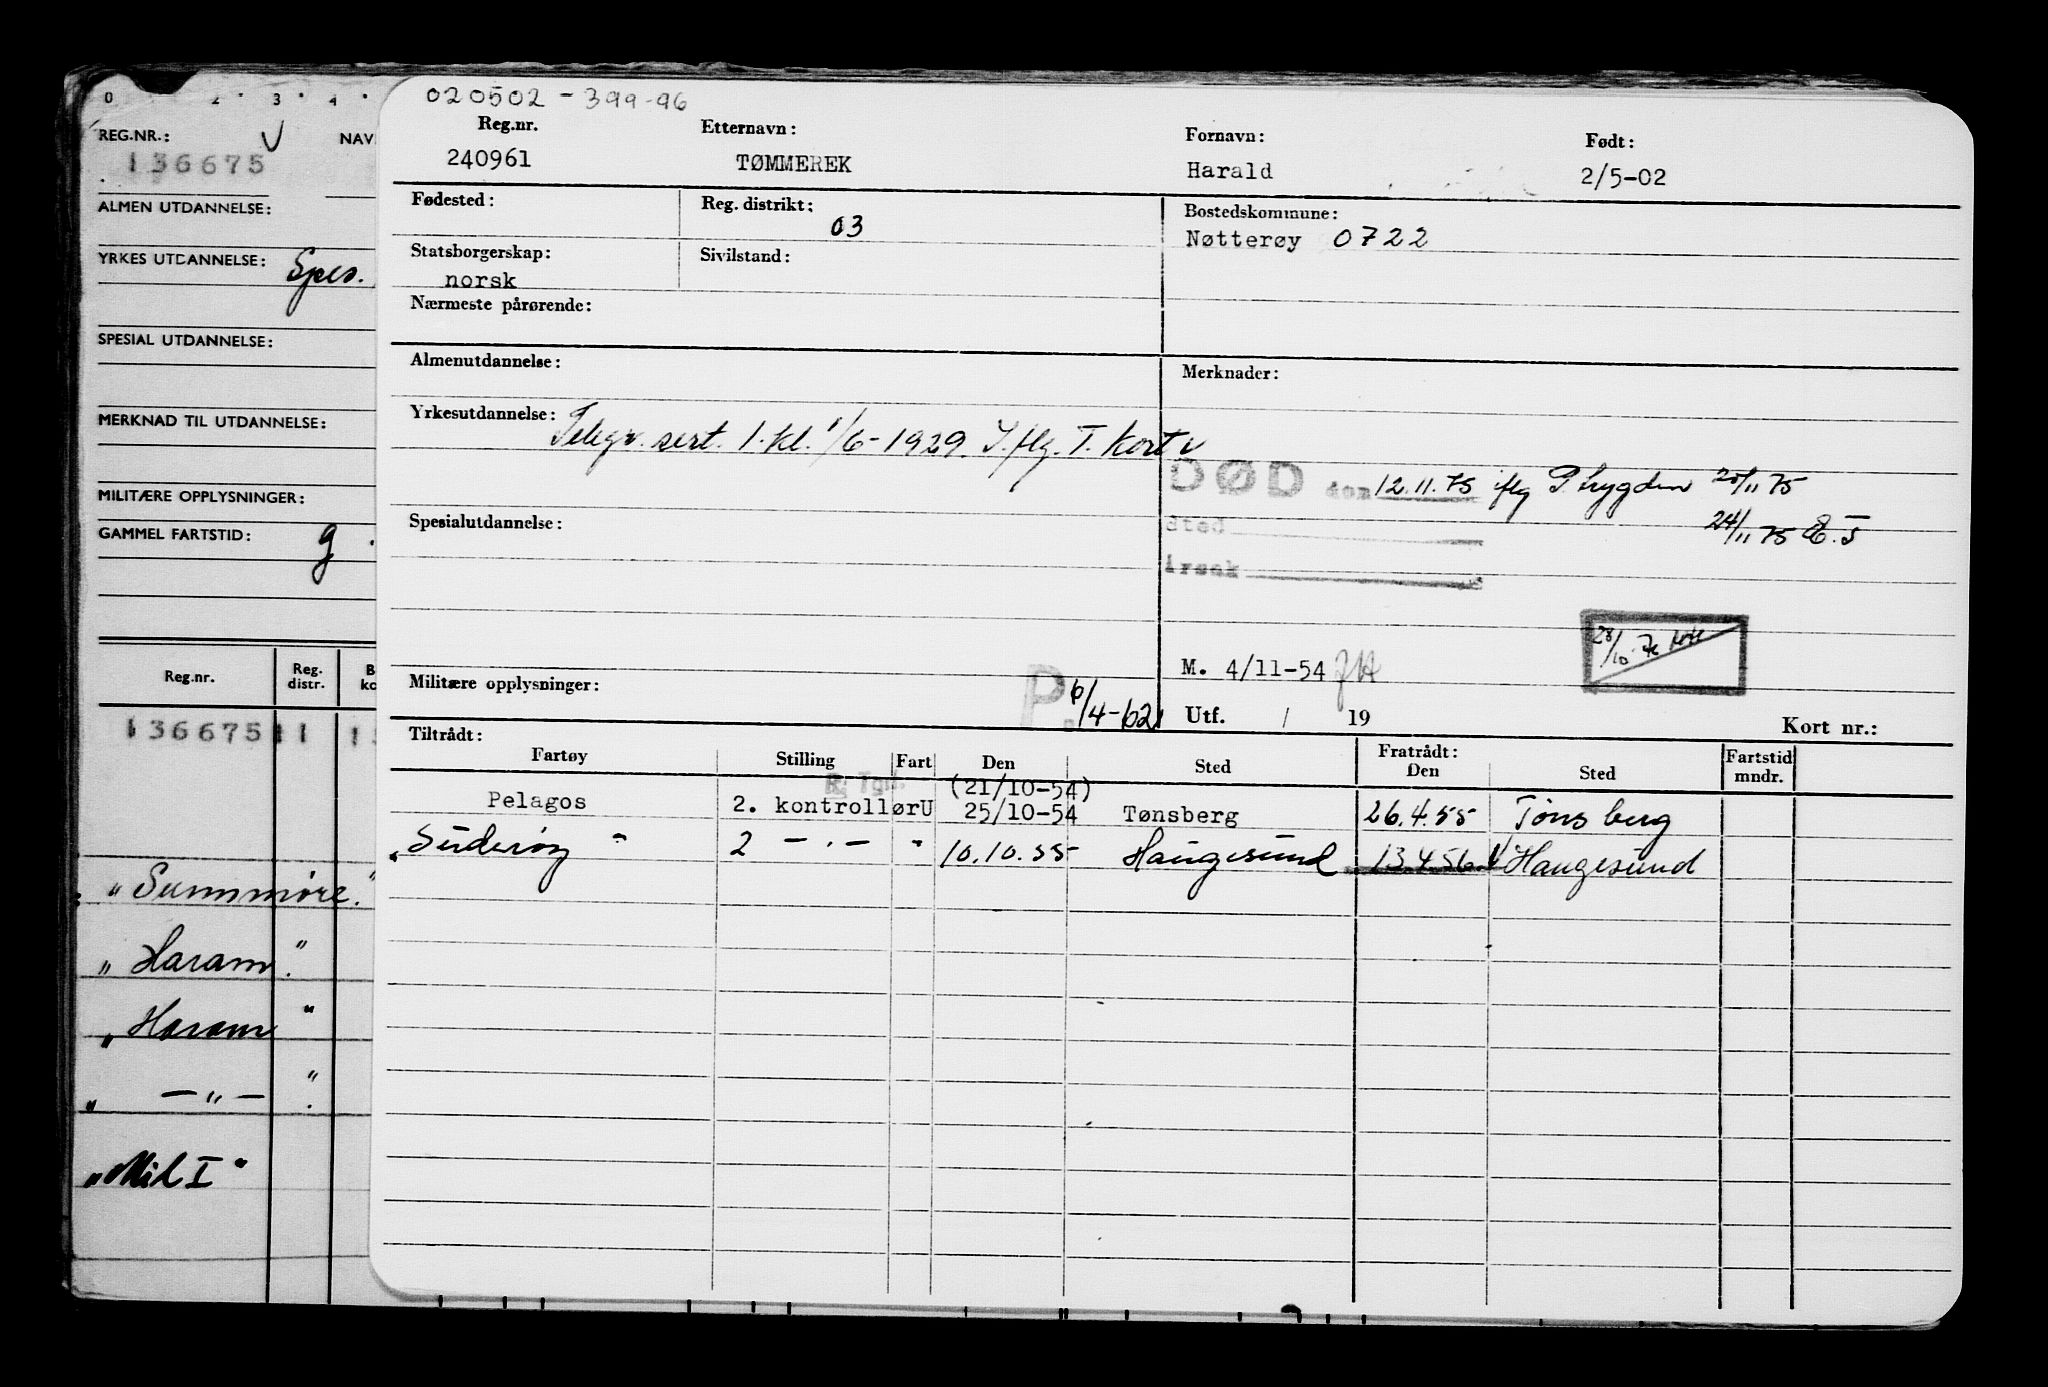 0 2 3 4
REG.NR.:
NAV
136675
ALMEN UTDANNELSE:
YRKES UTDANNELSE: Spes.
SPESIAL UTDANNELSE:
MERKNAD TIL UTDANNELSE:
MILITÆRE OPPLYSNINGER:
GAMMEL FARTSTID: g.
Reg.nr.
Reg. distr.
B
ko
136675 11 1
"Sunnmøre."
"Haram."
"Haram"
" — " — "
"Mil I"
020502 - 399-96
Reg.nr. Etternavn: Fornavn: Født:
240961 TØMMEREK Harald 2/5-02
Fødested: Reg. distrikt: 03 Bostedskommune:
Nøtterøy 0722
Statsborgerskap: Sivilstand:
norsk
Nærmeste pårørende:
Almenutdannelse: Merknader:
Yrkesutdannelse: Telegr. sert. 1.kl. 1/6-1929. I.flg. T. kort
DØD den 12.11.75 iflg P.trygden 25/11 75
Spesialutdannelse: sted 24/11 75 E.S
årsak
28/10
M. 4/11-54
Militære opplysninger: P. 6/4-62 Utf. / 19 Kort nr.:
Tiltrådt: Fratrådt:
Fartøy Stilling Fart Den Sted Den Sted Fartstid mndr.
R. Tgf. (21/10-54)
Pelagos 2. kontrollør U 25/10-54 Tønsberg 26.4.55 Tønsberg
"Suderøy" 2 — . — " 10.10.55 Haugesund 13.4.56 Haugesund